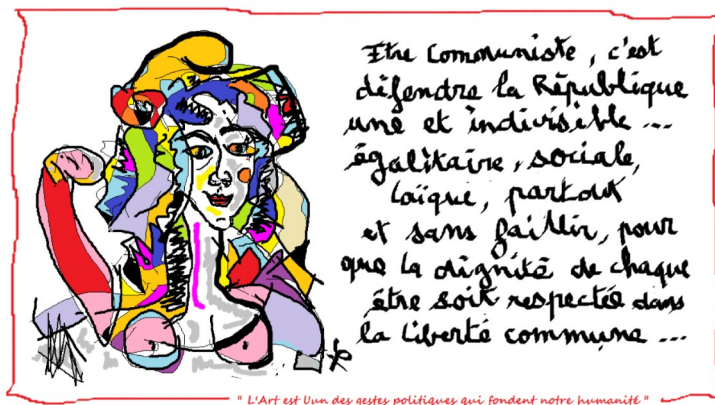 Etre Communiste, c'est
défendre la République
une et indivisible ...
égalitaire, sociale,
laïque, partout
et sans faillir, pour
que la dignité de chaque
être soit respectée dans
la liberté commune ...
" L'Art est Uun des gestes politiques qui fondent notre humanité "